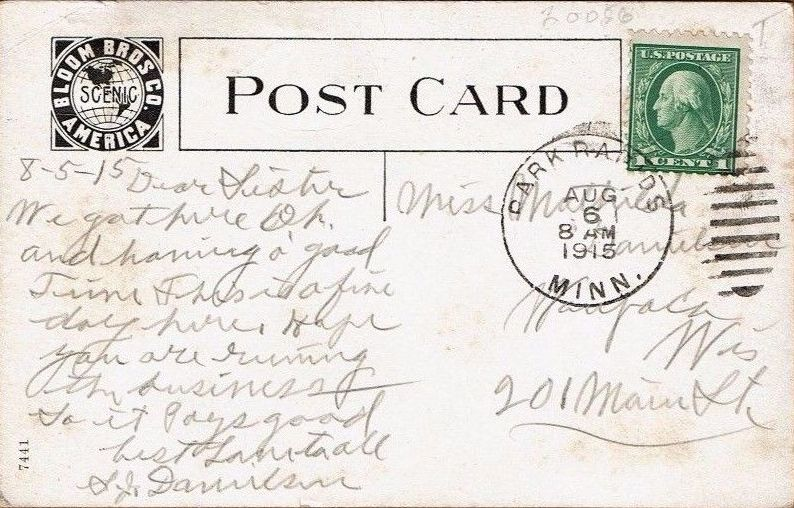 20056
BLOOM BROS CO.
SCENIC
AMERICA
POST CARD
U.S. POSTAGE
1 CENT 1
PARK RAPIDS
AUG
6
8 AM
1915
MINN.
8-5-15 Dear Sister
We got here O.k.
and having a good
Time This is a fine
day here. Hope
you are running
the business
So it Pays good
best
S.J. Danielson
Miss
Danielson
Waupaca
Wis
201 Main St
7441